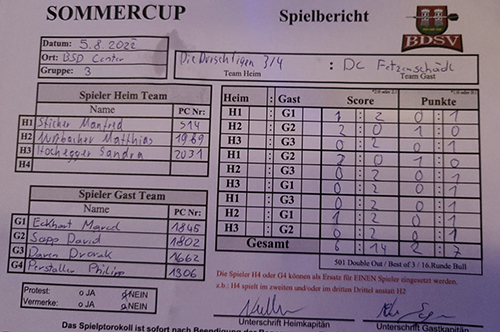 SOMMERCUP Spielbericht
BDSV
Datum: 5.8.2022
Ort: BSD Center
Gruppe: 3
Die Durschtigen 3/4 : DC Fetzenschädl
Team Heim Team Gast
Spieler Heim Team
Name PC Nr:
H1 Sticker Manfred 514
H2 Nußbacher Matthias 1969
H3 Hochegger Sandra 2031
H4
Spieler Gast Team
Name PC Nr:
G1 Eckhart Marcel 1845
G2 Sapp David 1802
G3 Daren Dvorak 1662
G4 Perstaller Philipp 1306
Heim : Gast Score Punkte
H1 : G1 1 : 2 0 : 1
H2 : G2 2 : 0 1 : 0
H3 : G3 0 : 2 0 : 1
H1 : G2 0 : 1
H2 : G3 2 : 0 1 : 0
H3 : G1 0 : 2 0 : 1
H1 : G3 0 : 2 0 : 1
H2 : G1 1 : 2 0 : 1
H3 : G2 0 : 2 0 : 1
Gesamt 6 : 14 2 : 7
501 Double Out / Best of 3 / 16.Runde Bull
Die Spieler H4 oder G4 können als Ersatz für EINEN Spieler eingesetzt werden.
z.b.: H4 spielt im zweiten und/oder im dritten Drittel anstatt H2
Protest: o JA o NEIN
Vermerke: o JA o NEIN
Unterschrift Heimkapitän Unterschrift Gastkapitän
Das Spielprotokoll ist sofort nach Beendigung der